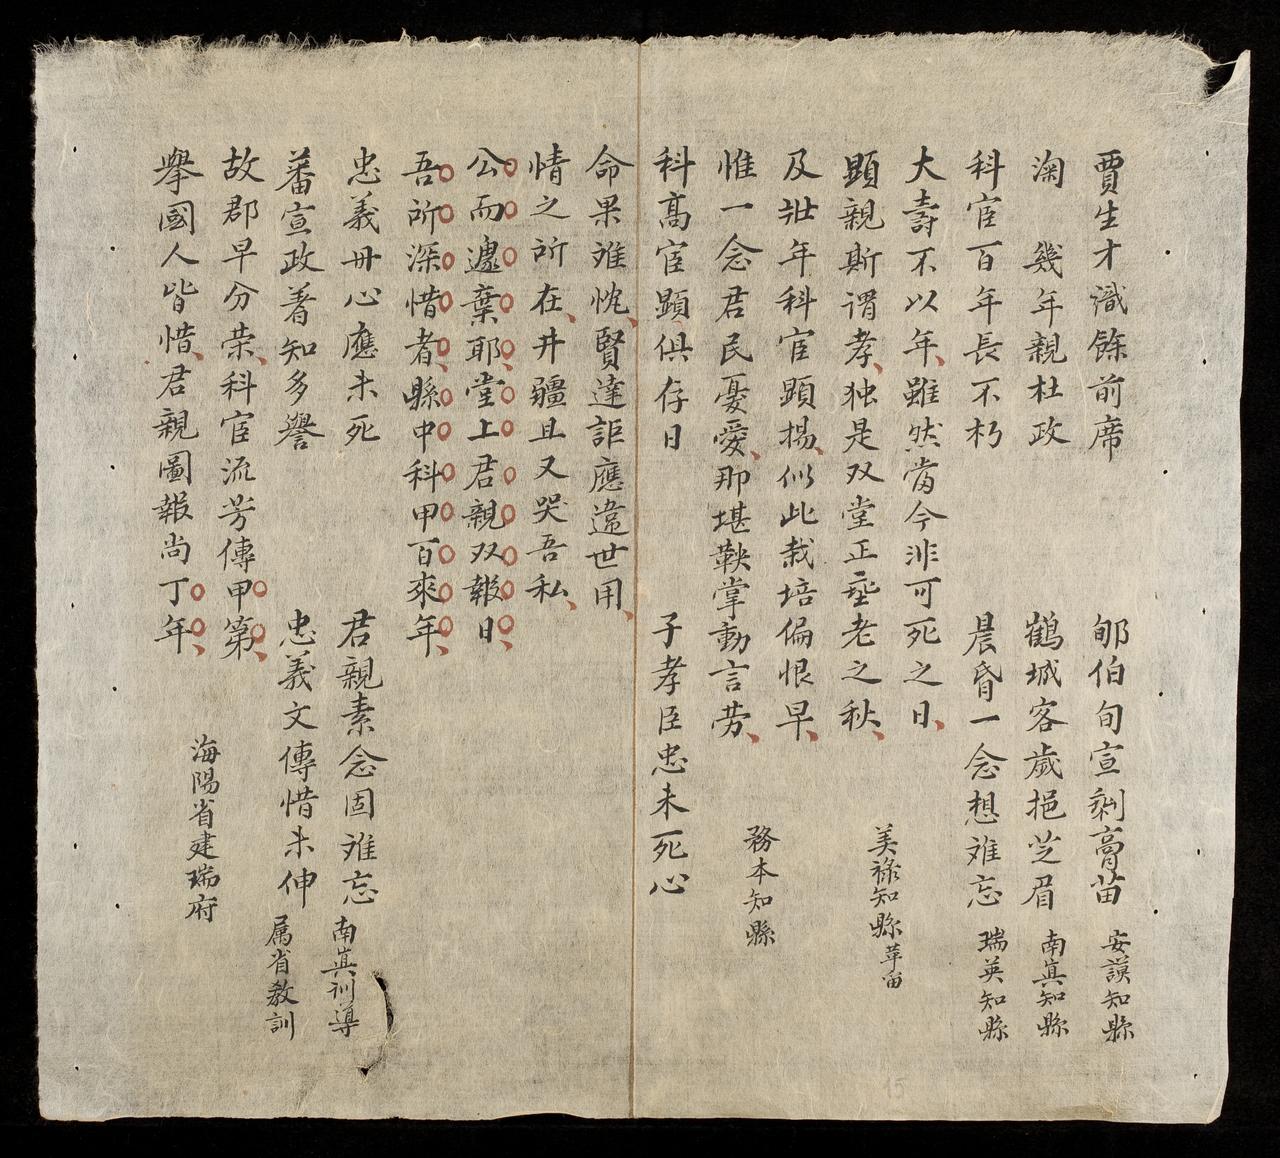 賈生才識餘前席 郇伯旬宣剩膏苗 安謨知縣
淘 幾年親杜政 鶴城客歲挹芝眉 南眞知縣
科宦百年長不朽 晨昏一念想难忘 瑞英知縣
大壽不以年雖然當今非可死之日
顕親斯謂孝独是双堂正垂老之秋 美祿知縣革留
及壯年科宦顕揚似此栽培偏恨早
惟一念君民憂愛那堪鞅掌動言劳 務本知縣
科髙宦顕俱存日 子孝臣忠未死心
命果难忱賢達詎應違世用
情之所在井疆且又哭吾私
公而遽棄耶堂上君親双報日
吾所深惜者縣中科甲百來年
忠義丹心應未死 君親素念固难忘 南眞訓導
蕃宣政著知多譽 忠義文傳惜未伸 属省教訓
故郡早分荣科宦流芳傳甲第
舉國人皆惜君親圖報尚丁年 海陽省建瑞府
15